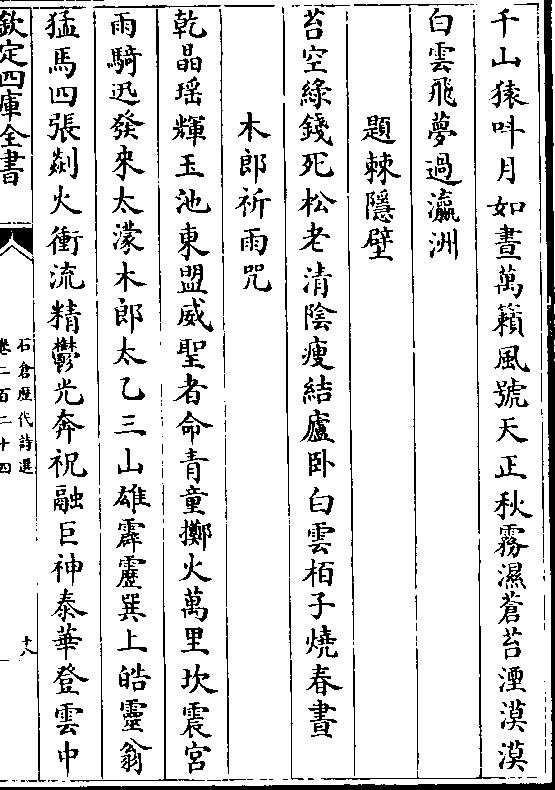 千山猿呌月如晝萬籟風號天正秋霧濕蒼苔湮漠漠
白雲飛夢過瀛洲
題棘隱壁
苔空綠錢死松老清陰瘦結廬卧白雲栢子燒春晝
木郎祈雨咒
乾晶瑶輝玉池東盟威聖者命青童擲火萬里坎震宫
雨騎迅發來太濛木郎太乙三山雄霹靂巽上皓靈翁
猛馬四張剡火衝流精鬱光奔祝融巨神泰華登雲中
欽定四庫全書
石倉歷代詩選
卷二百二十四
十八